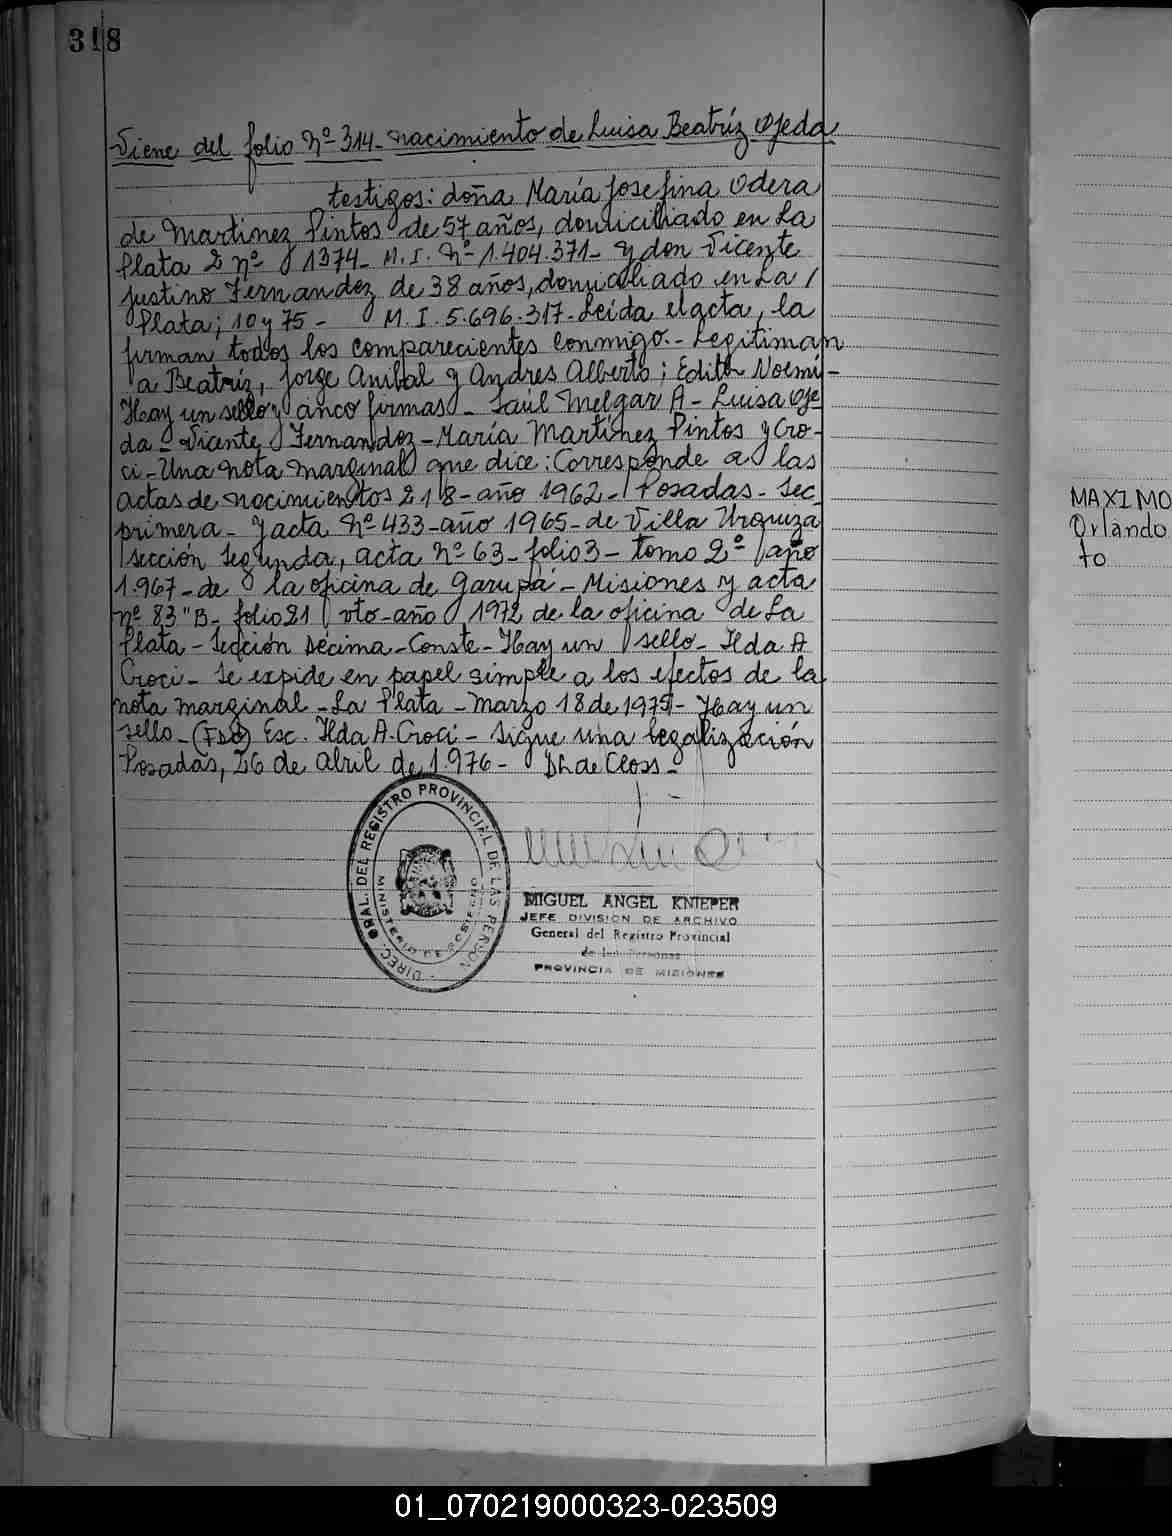 318
Viene del folio Nº 314- nacimiento de Luisa Beatríz Ojeda
testigos: doña María Josefina Odera
de Martinez Pintos de 57 años, domiciliado en La
Plata 2 nº 1374- M. I. Nº 1.404.371- y don Vicente
Justino Fernandez de 38 años, domiciliado en La /
Plata; 10 y 75 - M. I. 5.696.317. Leída el acta, la
firman todos los comparecientes conmigo.- Legitiman
a Beatríz, Jorge Anibal y Andres Alberto; Edith Noemí-
Hay un sello y cinco firmas- Saúl Melgar A- Luisa Oje
da- Vicente Fernandez- María Martínez Pintos y Cro-
ci- Una nota marginal que dice: Corresponde a las
actas de nacimientos 218- año 1962- Posadas- Sec
primera- y acta Nº 433- año 1965- de Villa Urquiza
Sección Segunda, acta Nº 63- folio 3- tomo 2º año
1.967- de la oficina de Garupá- Misiones y acta
nº 83 "B- folio 21 vto- año 1972 de la oficina de La
Plata- Sección Décima- Conste- Hay un sello- Ilda A
Croci- Se expide en papel simple a los efectos de la
nota marginal- La Plata- Marzo 18 de 1975- Hay un
sello- (Fdo) Esc. Ilda A. Croci- Sigue una legalización
Posadas, 26 de abril de 1.976- DL de Closs-
DIREC. GRAL. DEL REGISTRO PROVINCIAL DE LAS PERSON
MINISTERIO DE GOBIERNO
MIGUEL ANGEL KNIEPER
JEFE DIVISION DE ARCHIVO
General del Registro Provincial
de las Personas
PROVINCIA DE MISIONES
MAXIMO
Orlando
to
01_070219000323-023509